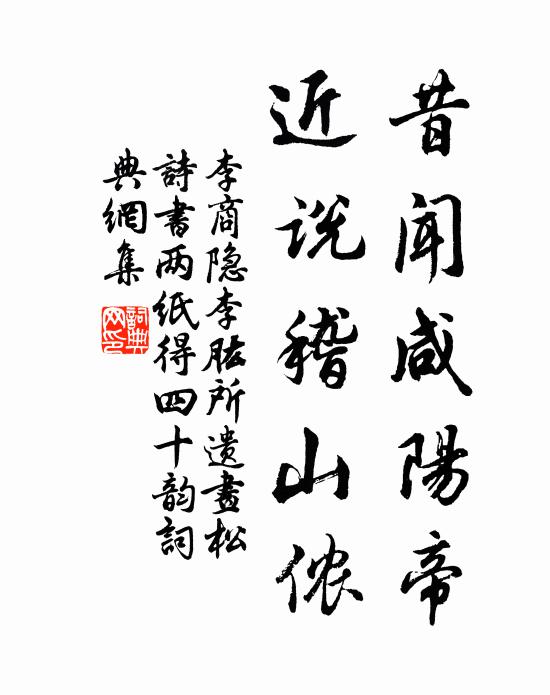 昔闻咸陽帝
近说稽山侬
李商隐李肱所遗畫松
詩書两纸得四十韵詞
典網集
詞典网印